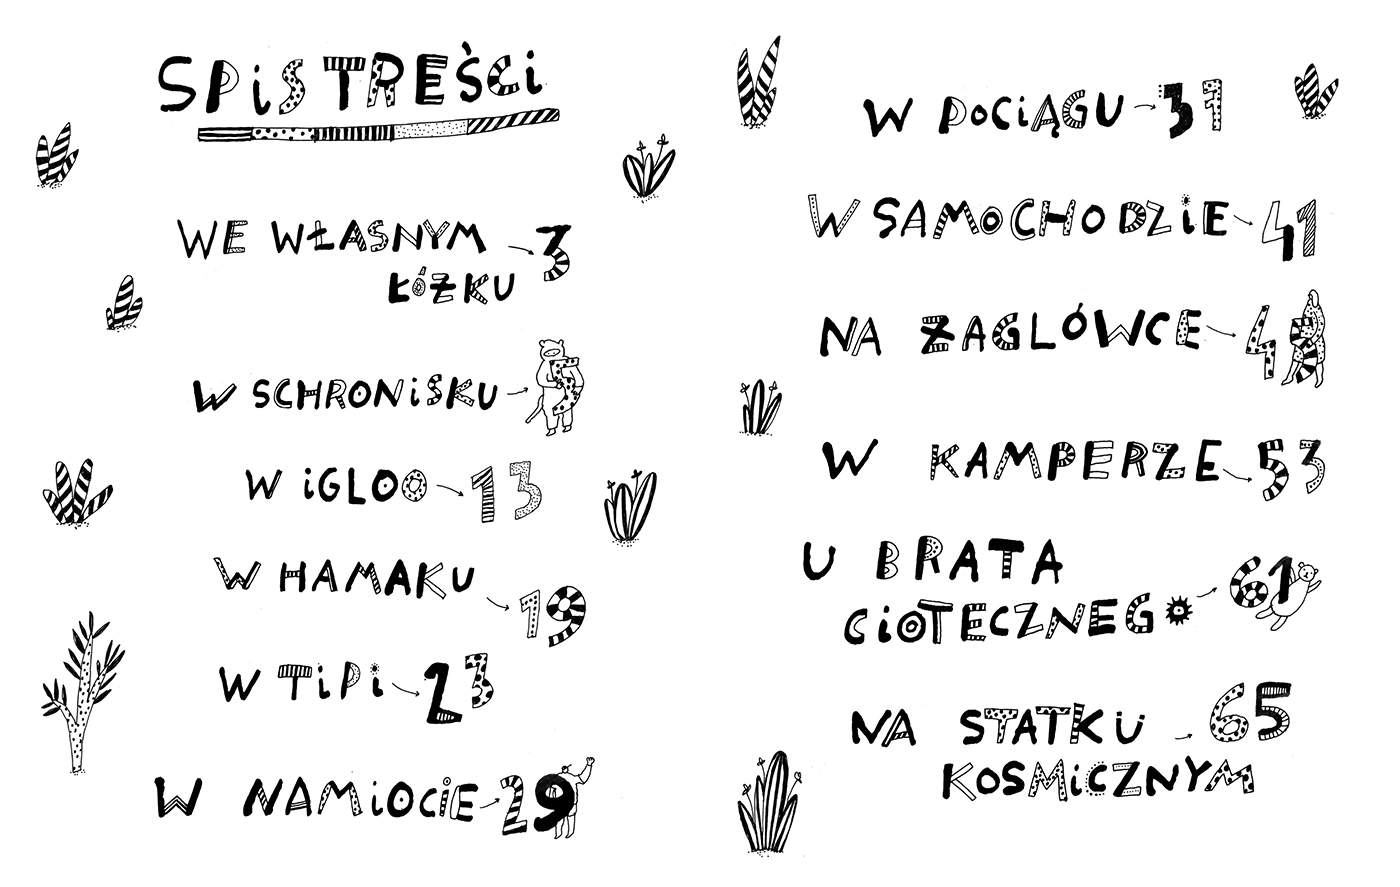 SPiS TREŚCi
WE WŁASNYM → 3
ŁÓŻKU
W SCHRONiSKU → 5
W iGLOO → 13
W HAMAKU → 19
W TiPi → 23
W NAMiOCiE → 29
W POCiĄGU → 31
W SAMOCHODZiE → 41
NA ŻAGLÓWCE → 45
W KAMPERZE → 53
U BRATA
CiOTECZNEGO → 61
NA STATKU → 65
KOSMiCZNYM